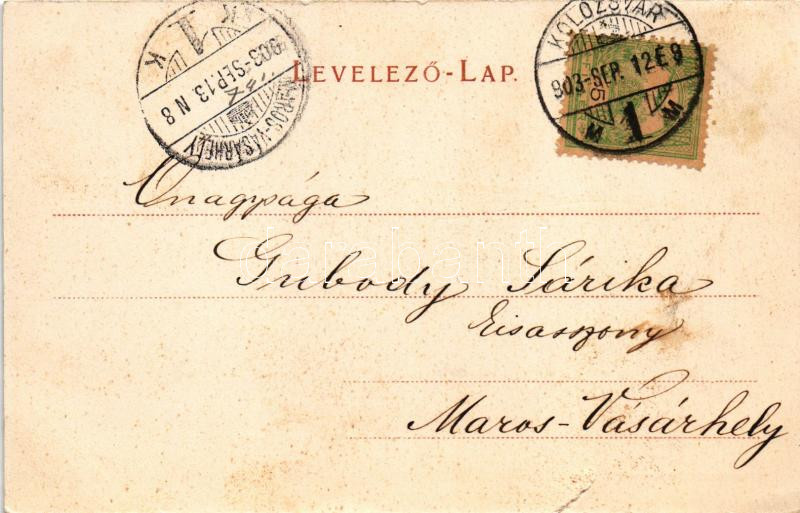 LEVELEZŐ-LAP.
KOLOZSVÁR
903-SEP. 12 E 9
1
M M
5
K K
903-SEP.13. N 8
MAROS-VÁSÁRHELY
Őnagysága
Gubody Sárika
kisasszony
Maros-Vásárhely